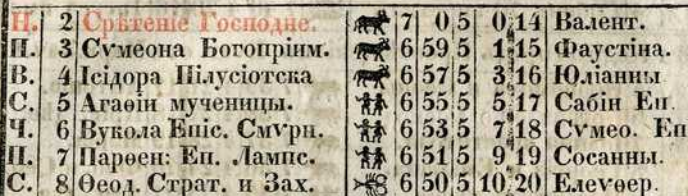 Н. 2 Срѣтеніе Господне. 7 0 5 0 14 Валент.
П. 3 Сѵмеона Богопріим. 6 59 5 1 15 Фаустіна.
В. 4 Ісідора Пілусіотска 6 57 5 3 16 Юліанны
С. 5 Агаѳіи мученицы. 6 55 5 5 17 Сабін Еп.
Ч. 6 Вукола Епіс. Смѵрн. 6 53 5 7 18 Сѵмео. Еп
П. 7 Парѳен: Еп. Лампс. 6 51 5 9 19 Сосанны.
С. 8 Ѳеод. Страт. и Зах. 6 50 5 10 20 Елеѵѳер.